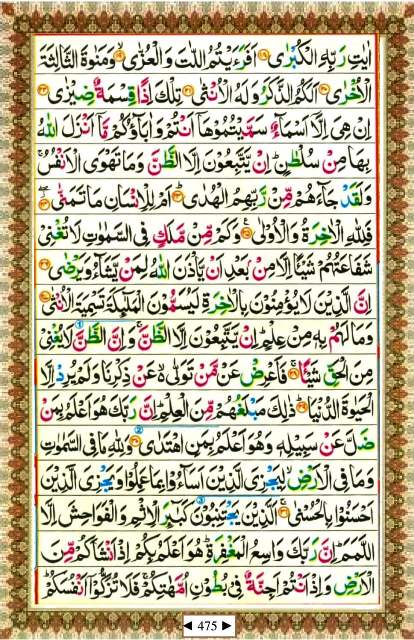 اٰيٰتِ رَبِّهِ الْكُبْرٰى ۝١٨ اَفَرَءَيْتُمُ اللّٰتَ وَالْعُزّٰى ۝١٩ وَمَنٰوةَ الثَّالِثَةَ
الْاُخْرٰى ۝٢٠ اَلَكُمُ الذَّكَرُ وَلَهُ الْاُنْثٰى ۝٢١ تِلْكَ اِذًا قِسْمَةٌ ضِيْزٰى ۝٢٢
اِنْ هِىَ اِلَّاۤ اَسْمَآءٌ سَمَّيْتُمُوْهَاۤ اَنْتُمْ وَاٰبَآؤُكُمْ مَّاۤ اَنْزَلَ اللّٰهُ
بِهَا مِنْ سُلْطٰنٍ ؕ اِنْ يَّتَّبِعُوْنَ اِلَّا الظَّنَّ وَمَا تَهْوَى الْاَنْفُسُ ۚ
وَلَقَدْ جَآءَهُمْ مِّنْ رَّبِّهِمُ الْهُدٰى ۝٢٣ اَمْ لِلْاِنْسَانِ مَا تَمَنّٰى ۝٢٤
فَلِلّٰهِ الْاٰخِرَةُ وَالْاُوْلٰى ۝٢٥ وَكَمْ مِّنْ مَّلَكٍ فِى السَّمٰوٰتِ لَا تُغْنِىْ
شَفَاعَتُهُمْ شَيْئًا اِلَّا مِنْۢ بَعْدِ اَنْ يَّاْذَنَ اللّٰهُ لِمَنْ يَّشَآءُ وَيَرْضٰى ۝٢٦
اِنَّ الَّذِيْنَ لَا يُؤْمِنُوْنَ بِالْاٰخِرَةِ لَيُسَمُّوْنَ الْمَلٰٓئِكَةَ تَسْمِيَةَ الْاُنْثٰى ۝٢٧
وَمَا لَهُمْ بِهٖ مِنْ عِلْمٍ ؕ اِنْ يَّتَّبِعُوْنَ اِلَّا الظَّنَّ ۚ وَاِنَّ الظَّنَّ لَا يُغْنِىْ
مِنَ الْحَقِّ شَيْئًا ۝٢٨ فَاَعْرِضْ عَنْ مَّنْ تَوَلّٰى ۙ عَنْ ذِكْرِنَا وَلَمْ يُرِدْ اِلَّا
الْحَيٰوةَ الدُّنْيَا ۝٢٩ ذٰلِكَ مَبْلَغُهُمْ مِّنَ الْعِلْمِ ؕ اِنَّ رَبَّكَ هُوَ اَعْلَمُ بِمَنْ
ضَلَّ عَنْ سَبِيْلِهٖ وَهُوَ اَعْلَمُ بِمَنِ اهْتَدٰى ۝٣٠ وَلِلّٰهِ مَا فِى السَّمٰوٰتِ
وَمَا فِى الْاَرْضِ ۙ لِيَجْزِىَ الَّذِيْنَ اَسَآءُوْا بِمَا عَمِلُوْا وَيَجْزِىَ الَّذِيْنَ
اَحْسَنُوْا بِالْحُسْنٰى ۝٣١ اَلَّذِيْنَ يَجْتَنِبُوْنَ كَبٰٓئِرَ الْاِثْمِ وَالْفَوَاحِشَ اِلَّا
اللَّمَمَ ؕ اِنَّ رَبَّكَ وَاسِعُ الْمَغْفِرَةِ ؕ هُوَ اَعْلَمُ بِكُمْ اِذْ اَنْشَاَكُمْ مِّنَ
الْاَرْضِ وَاِذْ اَنْتُمْ اَجِنَّةٌ فِىْ بُطُوْنِ اُمَّهٰتِكُمْ ۚ فَلَا تُزَكُّوْۤا اَنْفُسَكُمْ ؕ
◄ 475 ►